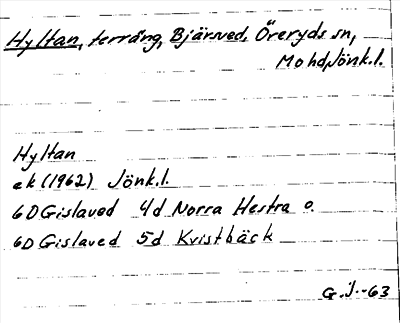 Hyltan, terräng, Bjärsved, Öreryds sn,
Mo hd, Jönk.l.
Hyltan
ek (1962) Jönk.l.
6D Gislaved 4d Norra Hestra o.
6D Gislaved 5d Kvistbäck
G.J.-63